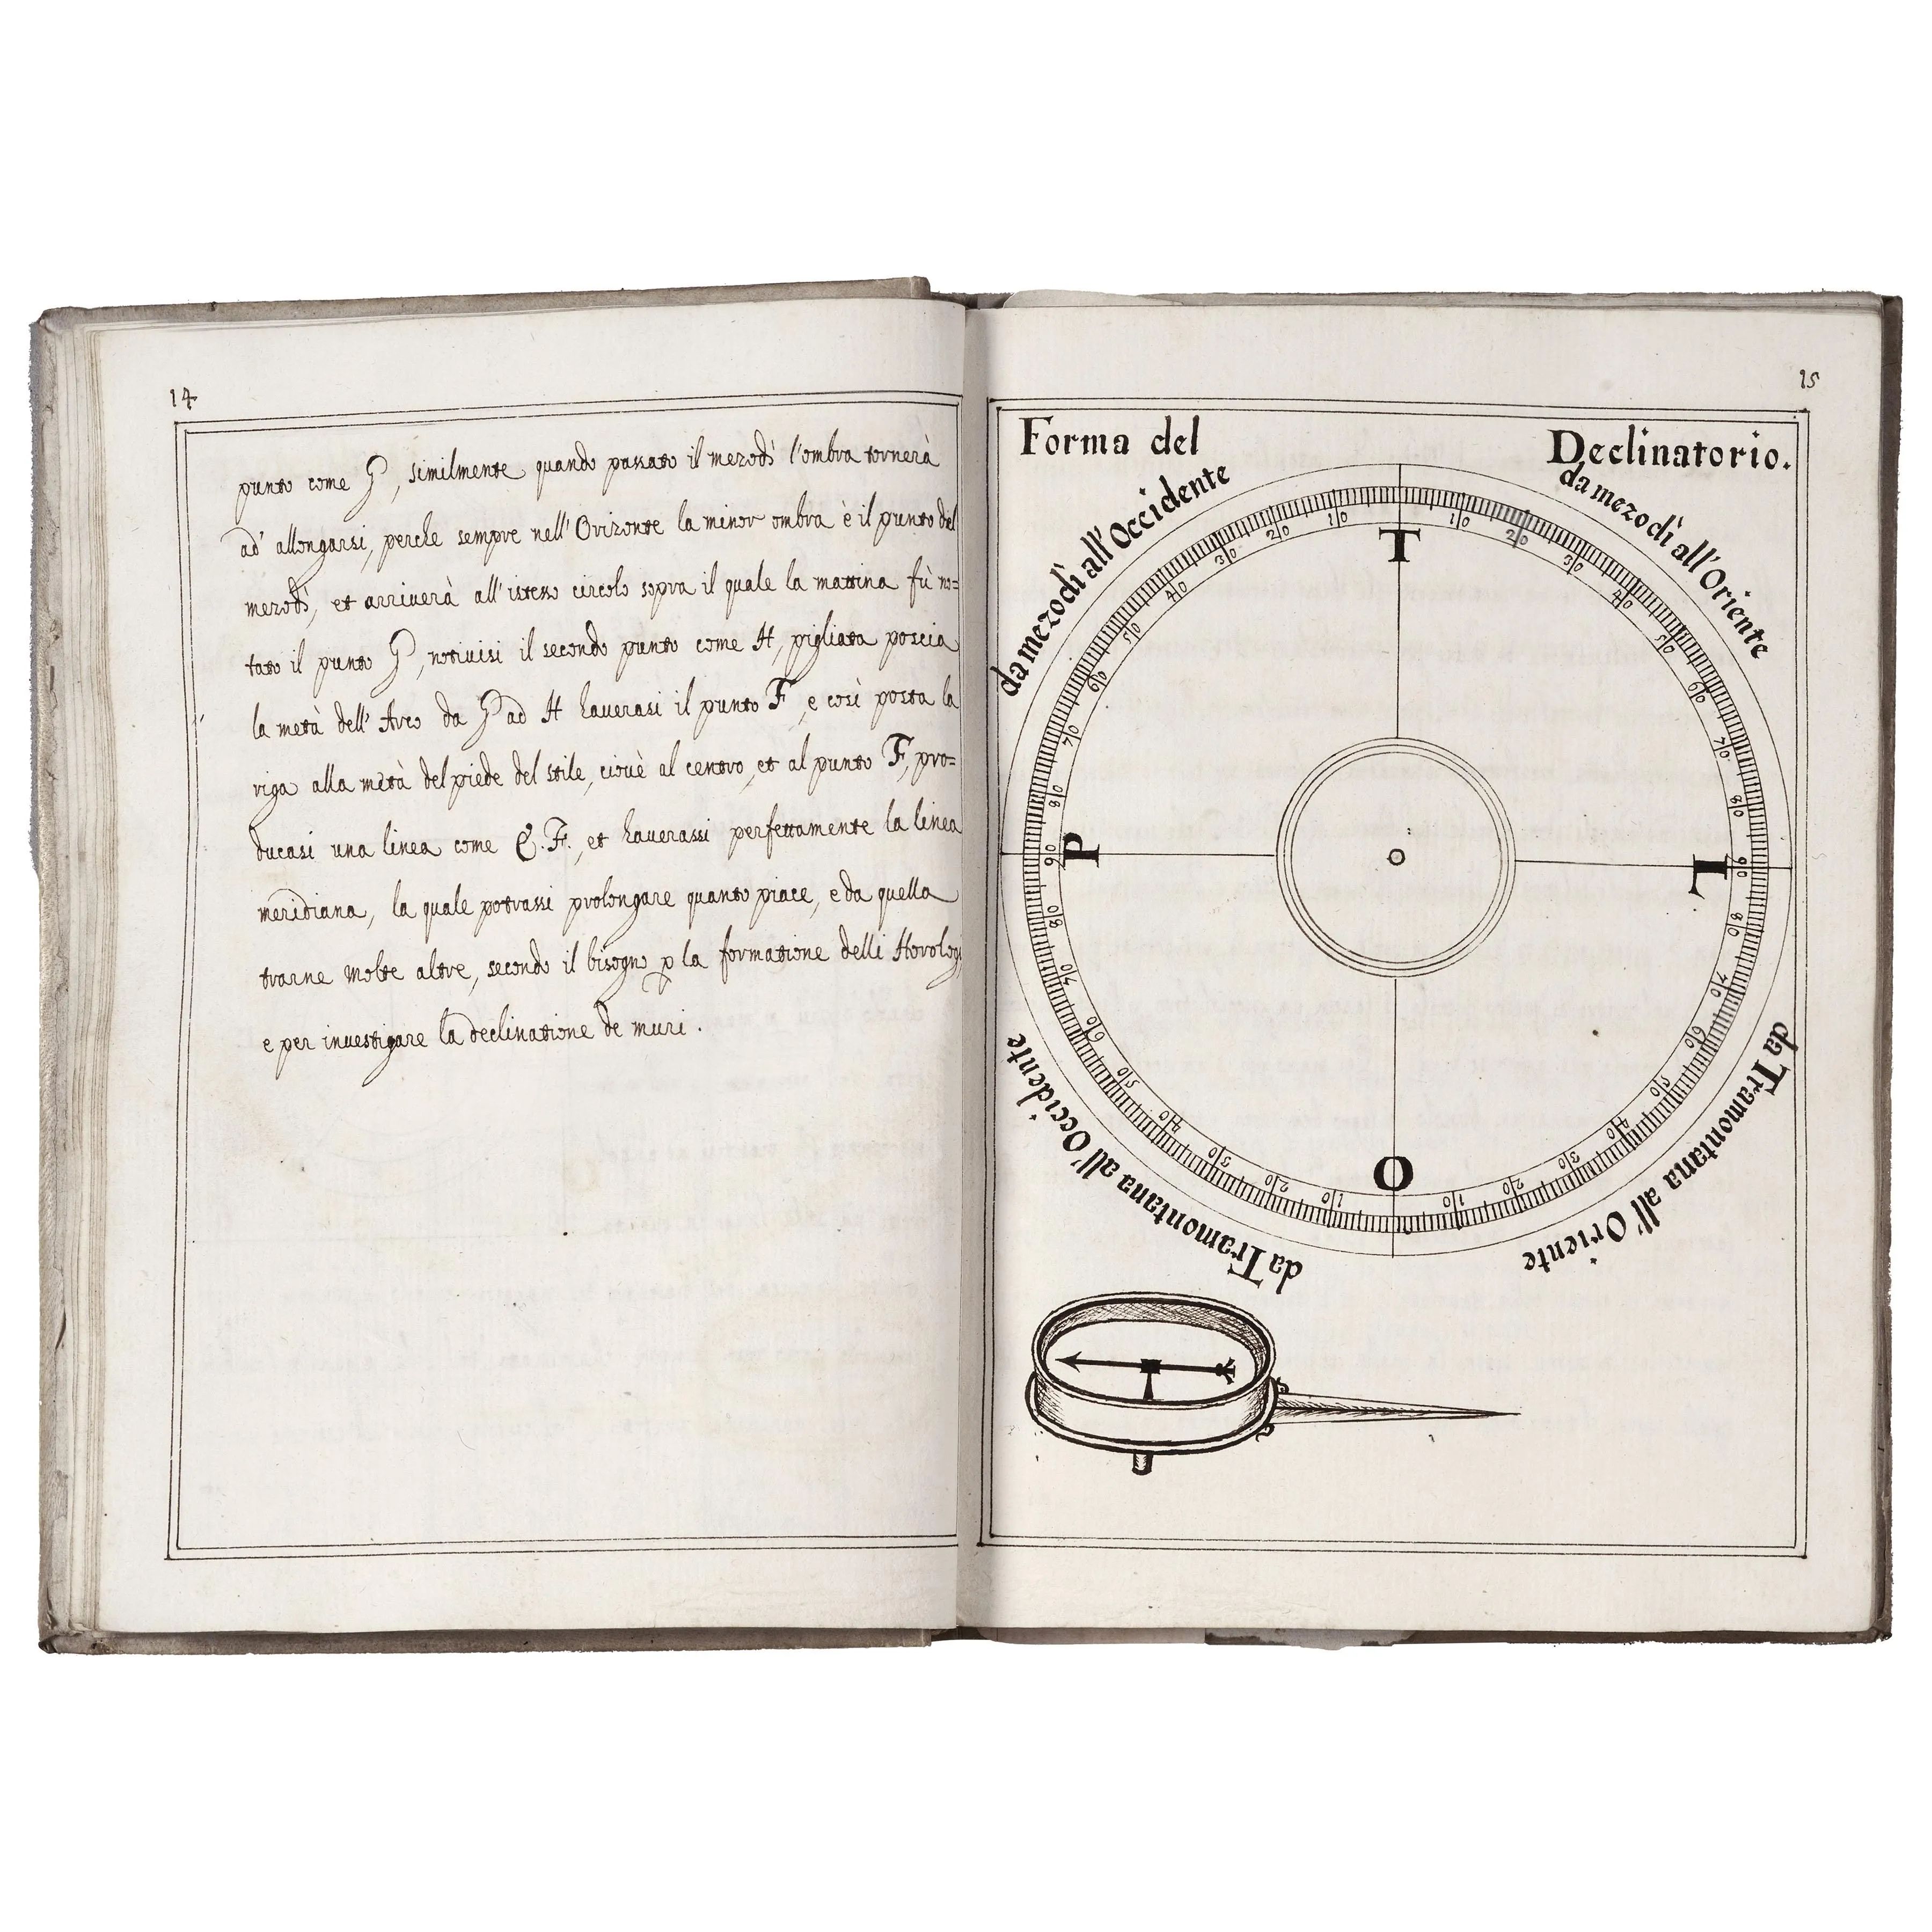 14
punto come G, similmente quando passato il mezodì l'ombra tornerà
ad' allongarsi, perche sempre nell'Orizonte la minor ombra è il punto del
mezodì, et arriuerà all'istesso circolo sopra il quale la mattina fù no=
tato il punto G, notiuisi il secondo punto come H, pigliata poscia
la metà dell'Arco da G ad H hauerasi il punto F, e così posta la
riga alla metà del piede del stile, ciouè al centro, et al punto F, pro=
ducasi una linea come E.F., et hauerassi perfettamente la linea
meridiana, la quale potrassi prolongare quanto piace, e da quella
trarne molte altre, secondo il bisogno p la formatione delli Horologi
e per inuestigare la declinatione de muri.
15
Forma del Declinatorio.
da mezodì all'Occidente
da mezodì all'Oriente
da Tramontana all'Occidente
da Tramontana all'Oriente
T
P
L
O
10 20 30 40 50 60 70 80 90
80 70 60 50 40 30 20 10
10 20 30 40 50 60 70 80
90 80 70 60 50 40 30 20 10